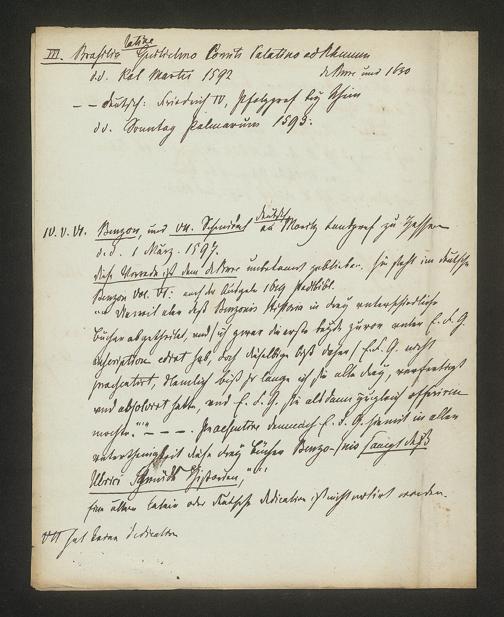 III. Brasilia latine Guilielmo Comiti Palatino ad Rhenum
d.d. Kal Martii 1592 de Bure und 1630
— — deutsch: Friedrich IV, Pfalzgraf bey Rhein
d.d. Sonntag Palmarum 1593.
IV. V. VI. Benzon, und VII. Schmidel deutsch an Moritz Landgraf zu Hessen
d.d. 1 März. 1597.
diese Vorrede ist dem de Bure unbekannt geblieben. Sie steht im deutschen
Benzon Vol. VI: auch die Ausgabe 1619
"" Dieweil aber dieß Benzonis Historia in drey unterschiedliche
Bücher abgetheilet, und ich zwar die erste beyde zuvor unter E. F. G.
inscription edirt hab, doch dieselbige biß daher E. F. G. nicht
praesentirt, Nemlich biß so lange ich sie alle drey verfertigt
und absolvirt hette, und E. F. G. sie alsdann zugleich offeriren
mochte."" — — — Praesentire demnach E. F. G. hiemit in aller
unterthenigkeit diese drey Bücher Benzonis sampt deß
Ulrici Schmidts Historien, ""
Eine ältere latein oder deutsche Dedication ist nicht notirt worden.
VII hat keine Dedication